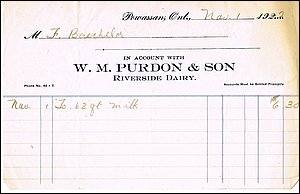 Powassan, Ont., Nov. 1 1922
M F. Bachelor
IN ACCOUNT WITH
W. M. PURDON & SON
RIVERSIDE DAIRY.
Phone No. 42 r 3 Accounts Must be Settled Promptly
Nov. 1 To 63 qt milk 6 30